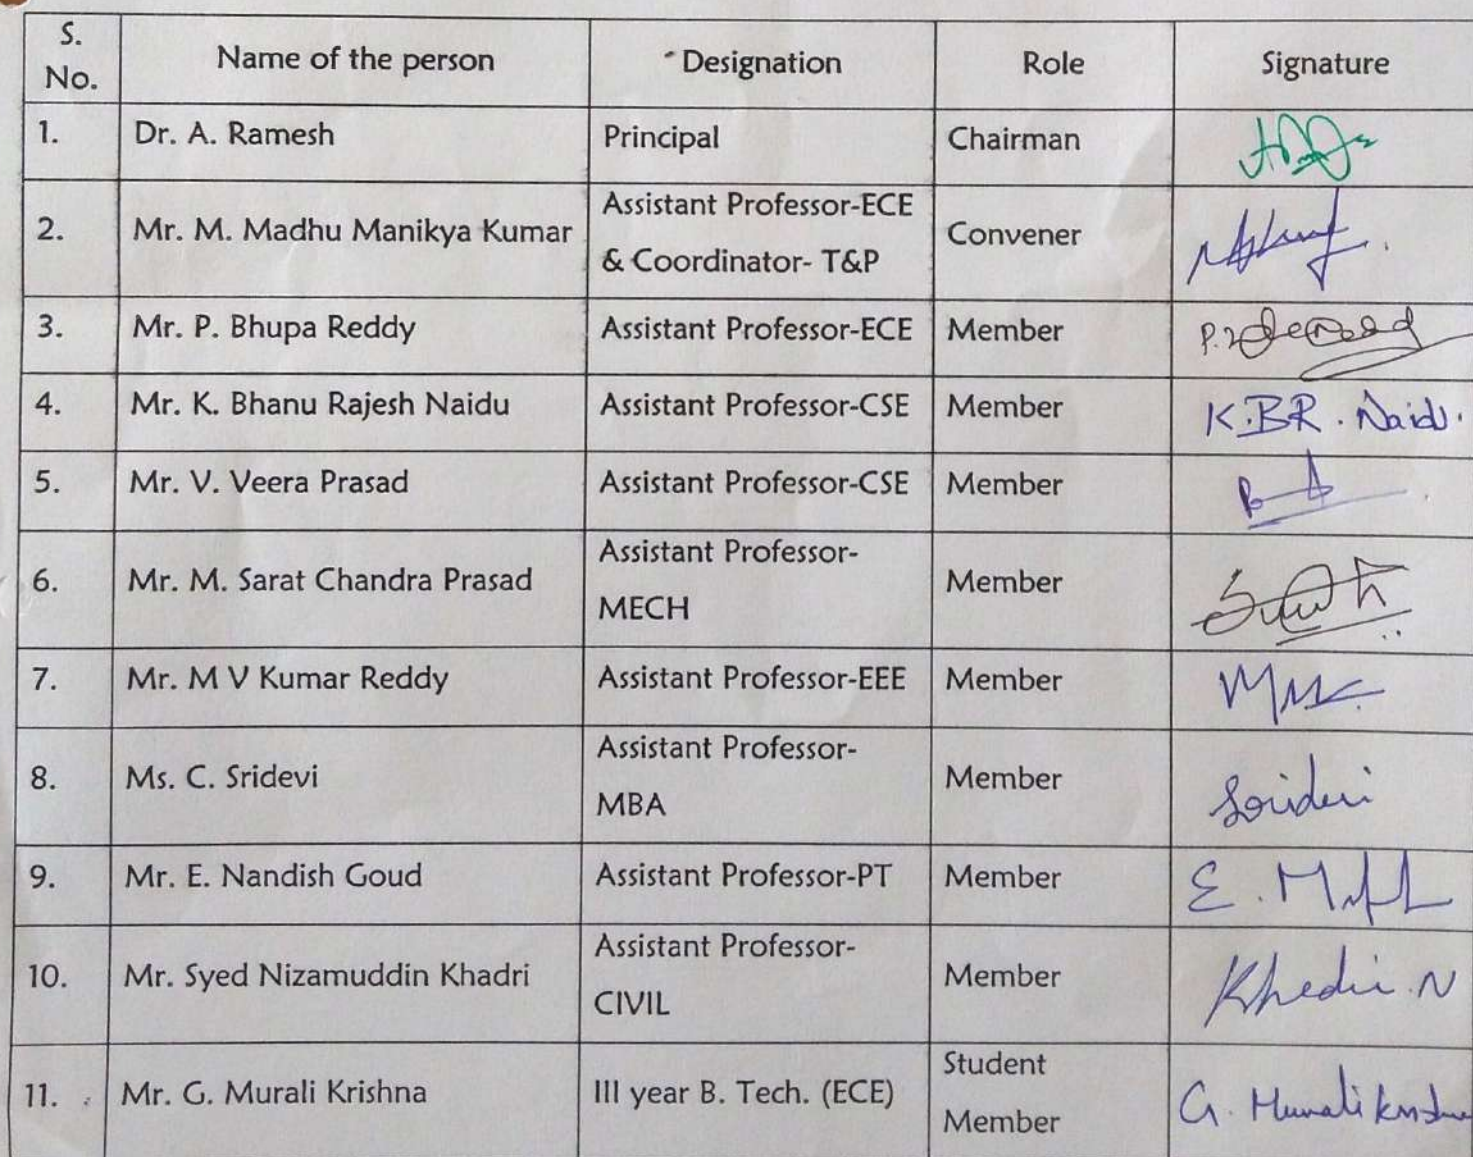 S.
No.
Name of the person
Designation
Role
Signature
1.
Dr. A. Ramesh
Principal
Chairman
2.
Mr. M. Madhu Manikya Kumar
Assistant Professor-ECE
& Coordinator- T&P
Convener
3.
Mr. P. Bhupa Reddy
Assistant Professor-ECE
Member
4.
Mr. K. Bhanu Rajesh Naidu
Assistant Professor-CSE
Member
K.BR. Naidu.
5.
Mr. V. Veera Prasad
Assistant Professor-CSE
Member
6.
Mr. M. Sarat Chandra Prasad
Assistant Professor-
MECH
Member
7.
Mr. M V Kumar Reddy
Assistant Professor-EEE
Member
8.
Ms. C. Sridevi
Assistant Professor-
MBA
Member
Sridevi
9.
Mr. E. Nandish Goud
Assistant Professor-PT
Member
10.
Mr. Syed Nizamuddin Khadri
Assistant Professor-
CIVIL
Member
Khadri.N
11.
Mr. G. Murali Krishna
III year B. Tech. (ECE)
Student
Member
G. Murali Krishna